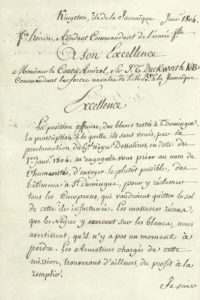 Kingston, île de la Jamaïque Juin 1804.
Adjudant Commandant de l'armée
A son Excellence
Monsieur le Contre Amiral, Sir J. T. Duckworth K.B.
Commandant les forces navales de S. M. B. à la Jamaïque
Excellence
La position affreuse des blancs restés à St Domingue,
la proscription à laquelle ils sont voués par la
proclamation du Gal nègre Dessalines, en date du
1er 1804. m'engagent à vous prier au nom de
l'humanité, d'envoyer le plutôt possible, des
bâtimens à St Domingue, pour y réclamer
tous les Européens, qui voudroient quitter le sol
de cette île infortunée. Les massacres réitérés
que les Nègres y exercent sur les blancs, nous
avertissent, qu'il n'y a pas un moment à
perdre. Les Armateurs chargés de cette
mission, trouveront d'ailleurs du profit à la
remplir.
Je suis